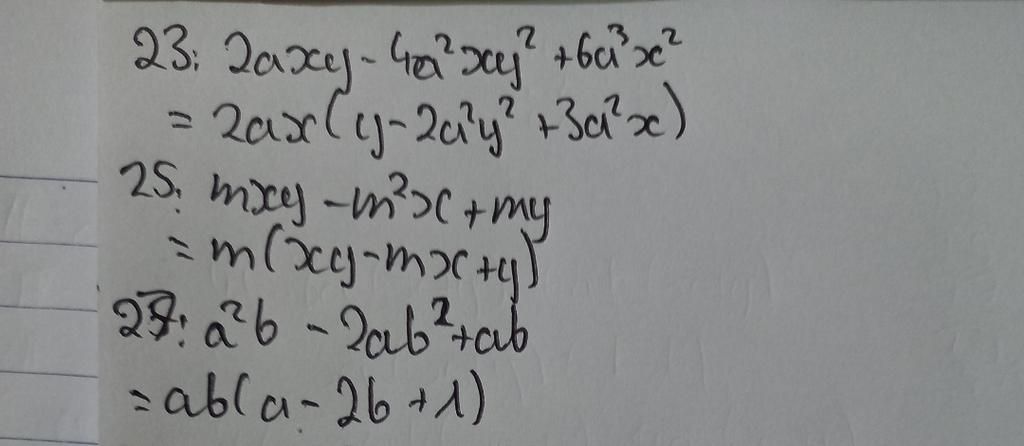 23: 2axy - 4a²xy² + 6a³x²
= 2ax(y - 2a²y² + 3a²x)
25: mxy - m²x + my
= m(xy - mx + y)
27: a²b - 2ab² + ab
= ab(a - 2b + 1)